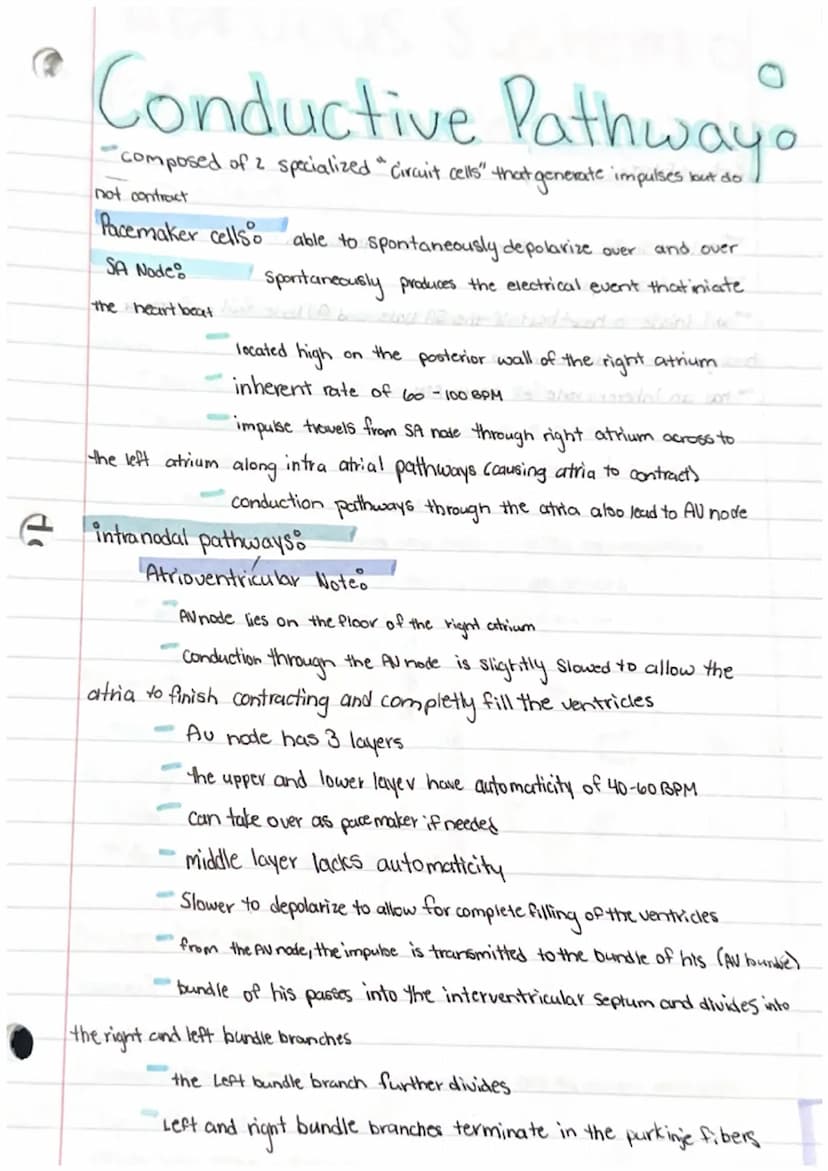 Conductive Pathway:
- composed of 2 specialized "circuit cells" that generate impulses but do
not contract
Pacemaker cells: able to spontaneously depolarize over and over
SA Node: spontaneously produces the electrical event that iniate
the heartbeat
- located high on the posterior wall of the right atrium
- inherent rate of 60-100 BPM
- impulse travels from SA node through right atrium across to
the left atrium along intra atrial pathways (causing atria to contract)
- conduction pathways through the atria also lead to AV node
intranodal pathways:
Atrioventricular Note:
- AV node lies on the floor of the right atrium
- Conduction through the AV node is slightly slowed to allow the
atria to finish contracting and completly fill the ventricles
- AV node has 3 layers
- the upper and lower layer have automaticity of 40-60 BPM
- can take over as pacemaker if needed
- middle layer lacks automaticity
- Slower to depolarize to allow for complete filling of the ventricles
- from the AV node, the impulse is transmitted to the bundle of his (AV bundle)
- bundle of his passes into the interventricular septum and divides into
the right and left bundle branches
- the Left bundle branch further divides
- Left and right bundle branches terminate in the purkinje fibers